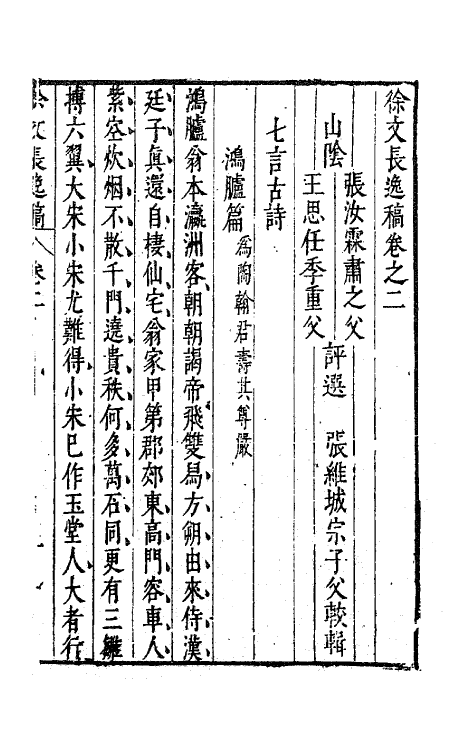 徐文長逸稿卷之二
山陰
張汝霖肅之父
王思任季重父
評選
張維城宗子父較輯
七言古詩
鴻臚篇
為陶翰君壽其尊嚴
鴻臚翁本瀛洲客朝朝謁帝飛雙舃方朔由來侍漢
廷子真還自棲仙宅翁家甲第郡郊東高門容車人
紫空炊烟不散千門遶貴秩何多萬石同更有三雛
搏六翼大宋小宋尤難得小宋已作玉堂人大者行
徐文長逸稿
卷二